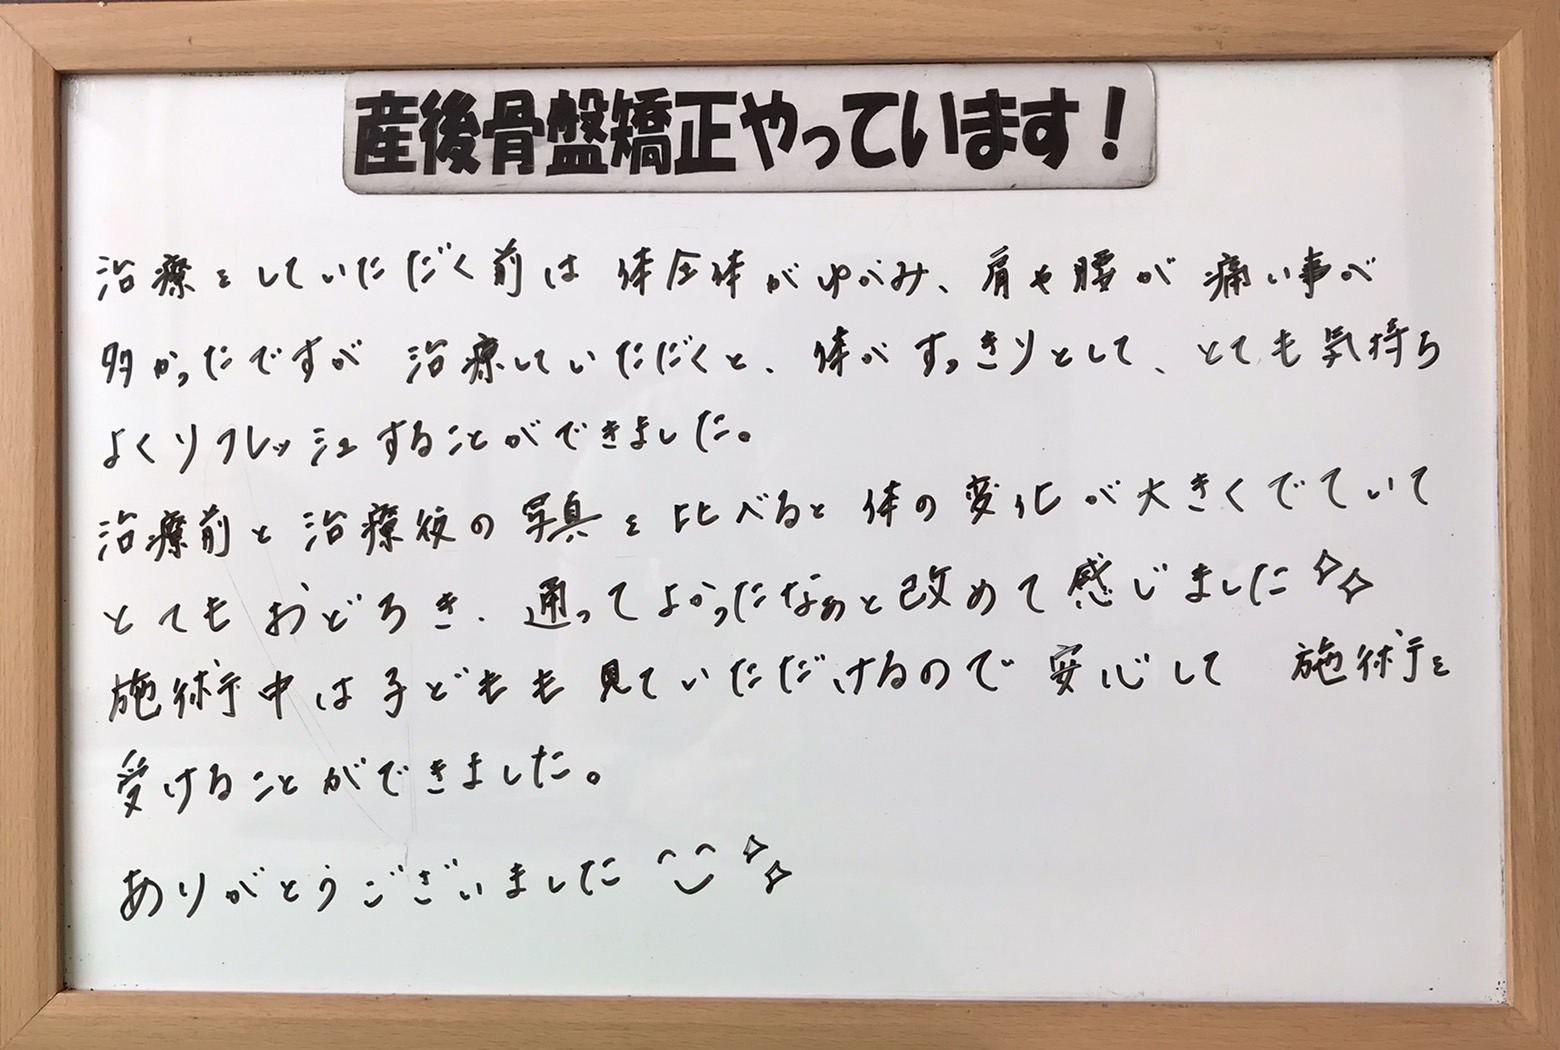 産後骨盤矯正やっています!
治療をしていただく前は体全体がゆがみ、肩や腰が痛い事が
多かったですが治療していただくと、体がすっきりとして、とても気持ち
よくリフレッシュすることができました。
治療前と治療後の写真を比べると体の変化が大きくでていて
とてもおどろき、通ってよかったなぁと改めて感じました
施術中は子どもも見ていただけるので安心して 施術を
受けることができました。
ありがとうございました